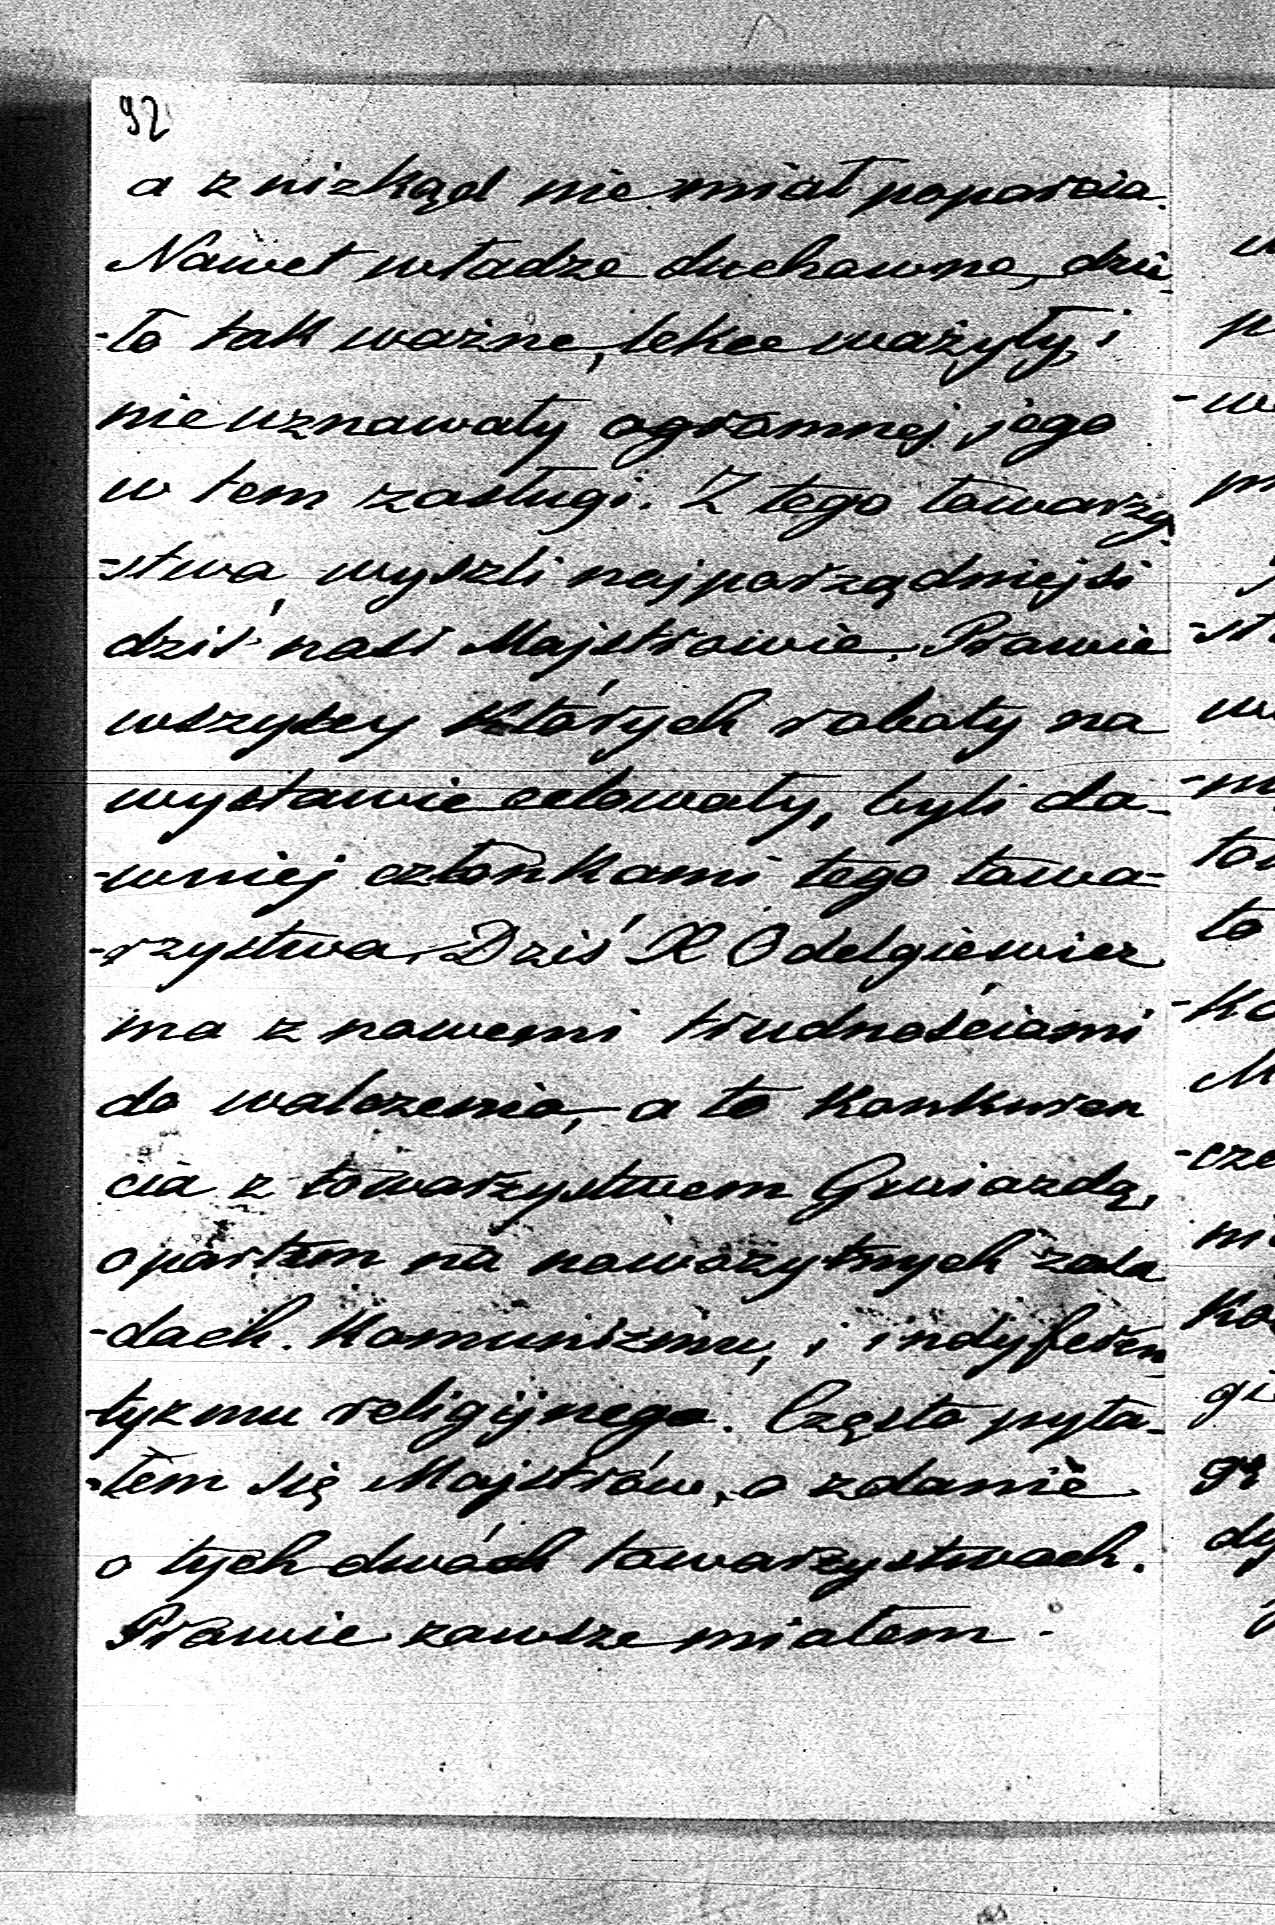 92
a z nizkąd nie miał poparcia.
Nawet władze duchowne, dzie
-ło tak ważne, lekce ważyły, i
nie uznawały ogromnej jego
w tem zasługi. Z tego towarzy
-stwa, wyszli najporządniejsi
dziś nasi Majstrowie. Prawie
wszyscy których roboty na
wystawie celowały, byli da-
-wniej członkami tego towa-
-rzystwa. Dziś X Odelgiewicz
ma z nowemi trudnościami
do walczenia, a to konkuren
cia z towarzystwem Gwiazdą,
opartem na nowożytnych zasa
-dach. Komunizmu, i indyferen
-tyzmu religijnego. Często pyta-
-łem się Majstrów, o zdanie
o tych dwóch towarzystwach.
Prawie zawsze miałem.